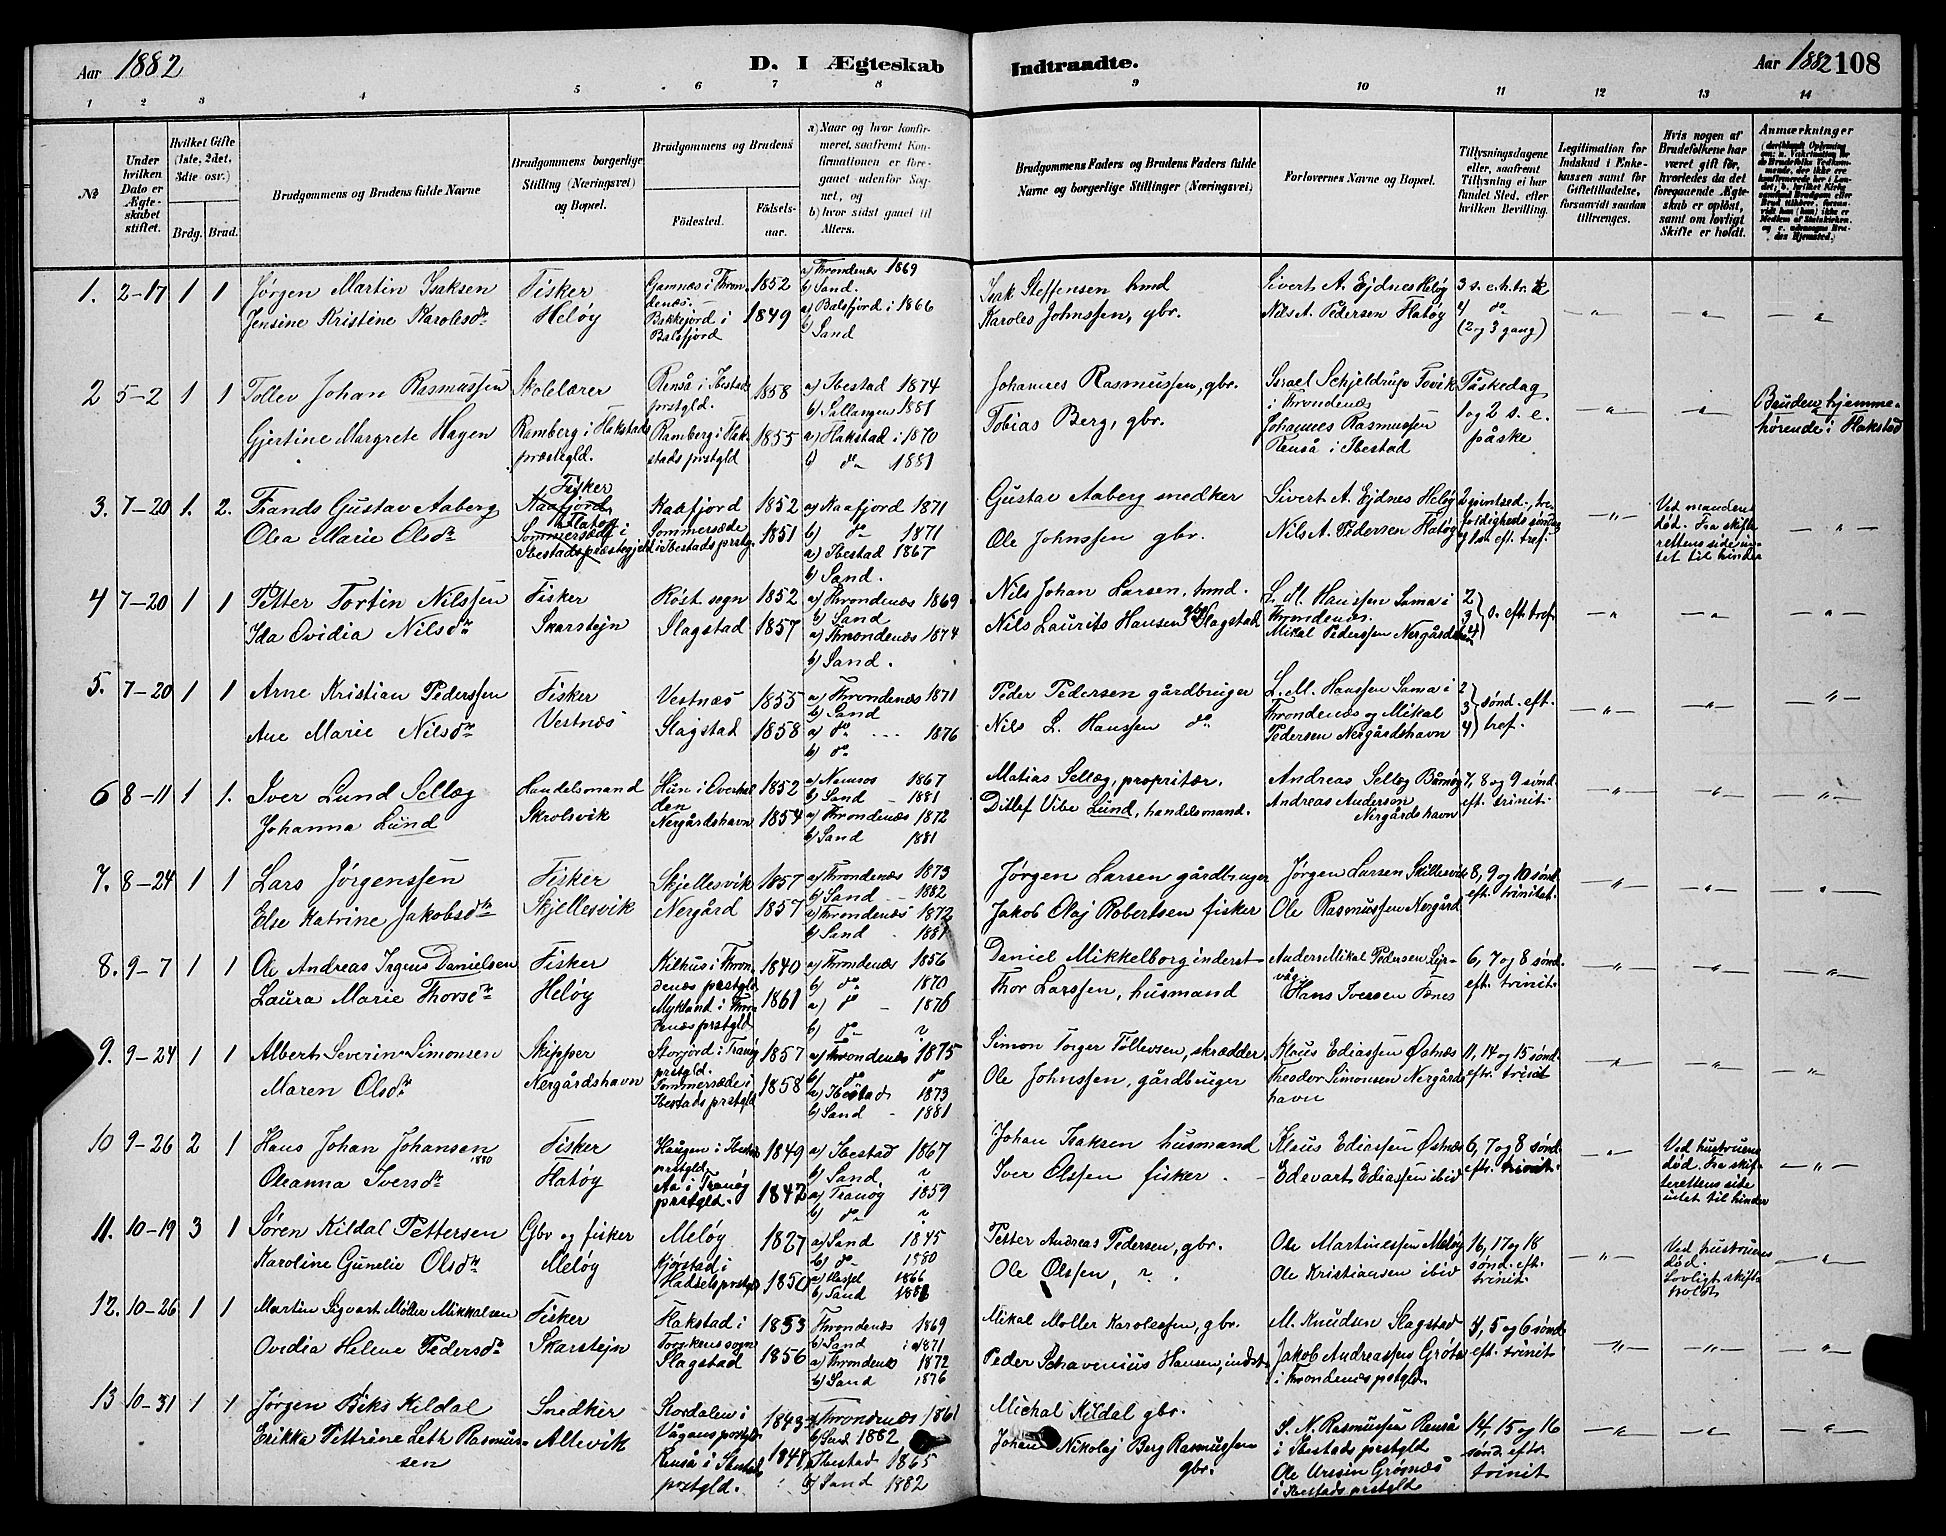 Aar 1882
D. I Ægteskab
Indtraadte.
Aar 1882 108
1 2 3 4 5 6 7 8 9 10 11 12 13 14
No
Under hvilken Dato er Ægteskabet stiftet.
Hvilket Gifte (1ste, 2det, 3die osv.)
Brdg. Brud.
Brudgommens og Brudens fulde Navne
Brudgommens borgerlige Stilling (Næringsvei) og Bopæl.
Brudgommens og Brudens
Fødested.
Fødselsaar.
a) Naar og hvor konfirmeret, saafremt Konfirmationen er foregaaet udenfor Sognet, og
b) hvor sidst gaaet til Alters.
Brudgommens Faders og Brudens Faders fulde Navne og borgerlige Stillinger (Næringsvei)
Forlovernes Navne og Bopæl.
Tillysningsdagene eller, saafremt Tillysning ei har fundet Sted, efter hvilken Bevilling.
Legitimation for Indskud i Enkekassen samt for Giftetilladelse, forsaavidt saadan tiltrænges.
Hvis nogen af Brudefolkene har været gift før, hvorledes da det foregaaende Ægteskab er opløst, samt om lovligt Skifte er holdt.
Anmærkninger
1. 2-17 1 1 Jørgen Martin Isaksen Fisker Gamnæs i Throndenæs. 1852 a) Throndenæs 1869 b) Sand. Isak Steffensen hmd Sivert A. Ejdnes Heløy 3 s. e. h. tr. k
Jensine Kristine Karolesdr Heløy Bakkejord i Balsfjord 1849 a) Balsfjord i 1866 b) Sand Karoles Johnssen, gbr. Nils A. Pedersen Flatøy 4 do (2 og 3 gang)
2 5-2 1 1 Tollev Johan Rasmussen Skolelærer Renså i Ibestads prstgld. 1858 a) Ibestad 1874 b) Sallangen 1881 Johannes Rasmussen, gbr. Israel Schjeldrup Tovik i Throndenæs Påskedag
Gjertine Margrete Hagen Ramberg i Flakstads præstegld. Ramberg i Flakstads prstgld 1855 a) Flakstad i 1870 b) do 1881 Tobias Berg, gbr. Johannes Rasmussen Renså i Ibestad 1 og 2 s. e. påske Bruden hjemmehørende i Flakstad
3. 7-20 1. 2. Frands Gustav Aaberg Fisker Kaafjord 1852 a) Kaafjord 1871 b) do 1871 Gustav Aaberg snedker Sivert A. Ejdnes Heløy
Olea Marie Olsdr Sommersæde i Ibestads præstegjeld Sommersæde i Ibestads prstg. 1851 a) Ibestad 1867 b) Sand. Ole Johnssen gbr. Nils A. Pedersen Flatøy Ved mandens død. Fra skifterettens side intet til hinder
4 7-20 1 1 Petter Tortin Nilssen Fisker Røst sogn 1852 a) Throndenæs 1869 b) Sand Nils Johan Larsen, hmd. L. M. Hanssen Sama i Throndenæs. 2 3 4 s. eft. tref.
Ida Ovidia Nilsdr Skarstejn Slagstad 1857 a) Throndenæs 1874 b) Sand. Nils Laurits Hansen gbr Slagstad Mikal Pederssen Nergårdshavn
5. 7-20 1 1 Arne Kristian Pederssen Fisker Vestnæs 1855 a) Throndenæs 1871 b) Sand Peder Pedersen gårdbruger L. M. Hanssen Sama i Throndenæs og Mikal Pedersen Nergårdshavn 2 3 4 sønd. eft. tref.
Ane Marie Nilsdr Vestnæs Slagstad 1858 a) do 1876 b) do Nils L. Hanssen do
6 8-11 1 1. Iver Lund Sellæg Handelsmand Hun i Overhalden 1852 a) Namsos 1867 b) Sand 1881 Matias Sellæg, propritær. Andreas Sellæg 7, 8 og 9 sønd eft. trinit.
Johanna Lund Skrolsvik Nergårdshavn 1854 a) Throndenæs 1872 b) Sand 1881 Ditlef Vibe Lund, handelsmand. Andreas Anderson Nergårdshavn
7. 8-24 1 1 Lars Jørgenssen Fisker Skjellesvik 1857 a) Throndenæs 1873 b) Sand 1882 Jørgen Larsen gårdbruger Jørgen Larsen Skillesvik 8, 9 og 10 sønd eft. trinitat.
Else Katrine Jakobsdtr Skjellesvik Nergård 1857 a) Throndenæs 1872 b) Sand 1881 Jakob Olaj Robertsen fisker Ole Rasmussen Nergård
8. 9-7 1 1 Ole Andreas Ingens Danielsen Fisker Kilhus i Throndenæs prstgld 1840 a) Throndenæs 1856 b) do 1870 Daniel Mikkelborg inderst Anders Mikal Pedersen Lysvåg 6, 7 og 8 sønd. eft. trinit.
Laura Marie Thorsdr Heløy Mykland i Throndenæs prstgld 1861 a) do 1876 b) do Thor Larssen, husmand Hans Iversen Fenes
9. 9-24 1 1 Albert Severin Simonsen Skipper Storjord i Tranøy prstgld. 1857 a) Throndenæs 1875 b) do Simon Torger Tollevsen, skrædder. Klaus Ediassen Østnæs 11, 14 og 15 sønd eftr. trinit
Maren Olsdr Nergårdshavn Sommersæde i Ibestads prstgld 1858 a) Ibestad 1873 b) Sand 1881 Ole Johnssen, gårdbruger Theodor Simonsen Nergårdshavn
10 9-26 2 1 Hans Johan Johansen Fisker Haugen i Ibestad prstgld 1849 a) Ibestad 1867 b) Sand, Johan Isaksen husmand Klaus Ediassen Østnæs 6, 7 og 8 sønd eft. trinit.
Oleanna Iversdr Flatøy Aa i Tranøy prstgld. 1842 a) Tranøy 1859 b) do Iver Olssen fisker Edevart Ediassen ibid Ved hustruens død. Fra skifterettens side intet til hinder
11. 10-19 3 1 Søren Kildal Pettersen Gbr og fisker Meløy 1827 a) Sand 1845 b) do 1880 Petter Andreas Pedersen, gbr. Ole Martinussen Meløy 16, 17 og 18 sønd. eft. trinit.
Karoline Gunelie Olsdr Meløy Kjørstad i Hadsels prstgld 1850 a) Hassel 1866 b) Sand 1881 Ole Olssen, Ole Kristiansen ibid Ved hustruens død. Lovligt skifte holdt
12. 10-26 1 1 Martin Sigvart Møller Mikkalsen Fisker Flakstad i Torskens sogn 1853 Throndenæs 1869 b) Sand 1871 Mikal Møller Karolessen, gbr. M. Knudsen Slagstad 4, 5 og 6 sønd. eft. trinit
Ovidia Helene Pedersdr Skarstejn Slagstad 1856 a) Throndenæs 1872 b) Sand 1876 Peder Schavenius Hansen, indst Jakob Andreassen Grøte i Throndenæs prstgld.
13 10-31 1 1 Jørgen Biks Kildal Snedker Stordalen i Vågans prstgld 1843 a) Throndenæs 1861 b) Sand 1882 Michal Kildal gbr. S. N. Rasmussen Renså i Ibestads prstgld 14, 15 og 16 sønd. eftr. trinit
Erikka Pettrine Leth Rasmussen Allevik Renså i Ibestads prstgld. 1848 a) Ibestad 1865 b) Sand 1882 Johan Nikolaj Berg Rasmussen gbr. Ole Ursin Grønnæs i Ibestads prstgld